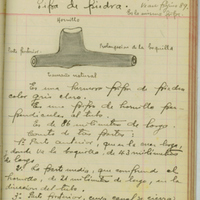 Pipa de piedra.
Hornillo
Parte posterior
Prolongacion de la boquilla
Tamaño natural
Es una hermosa pipa de piedra
color gris
Es una pipa de hornillo per-
pendicular al tubo.
Es de 86 milimetros de largo
Consta de tres partes:
1.º Parte anterior, que es la mas larga,
donde va la boquilla, de 43 milimetros
de largo.
2.º La parte media, que comprende el
hornillo, de 21 milimetros de largo, en la
direccion del tubo.
3.º Parte posterior,